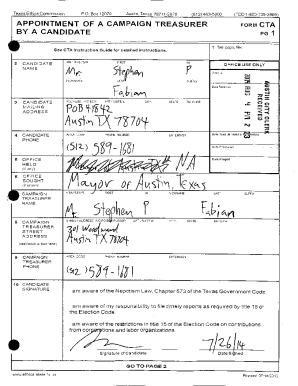 Texas Ethics Commission P.O. Box 12070 Austin, Texas 78711-2070 (512) 463-5800 (TDD 1-800-735-2989)
APPOINTMENT OF A CAMPAIGN TREASURER BY A CANDIDATE
FORM CTA
PG 1
See CTA Instruction Guide for detailed instructions.
1 Total pages filed:
2 CANDIDATE NAME
Mr. Stephen P
Fabian
OFFICE USE ONLY
AUSTIN CITY CLERK
RECEIVED
3 CANDIDATE MAILING ADDRESS
POB 41842
Austin TX 78704
4 CANDIDATE PHONE
AREA CODE PHONE NUMBER EXTENSION
(512) 589-1681
5 OFFICE HELD
NA
6 OFFICE SOUGHT
Mayor of Austin, Texas
7 CAMPAIGN TREASURER NAME
Mr. Stephen P Fabian
8 CAMPAIGN TREASURER STREET ADDRESS
301 Woodward
Austin TX 78704
9 CAMPAIGN TREASURER PHONE
AREA CODE PHONE NUMBER EXTENSION
(512) 589-1681
10 CANDIDATE SIGNATURE
I am aware of the Nepotism Law, Chapter 573 of the Texas Government Code.
I am aware of my responsibility to file timely reports as required by title 15 of the Election Code.
I am aware of the restrictions in title 15 of the Election Code on contributions from corporations and labor organizations.
7/26/14
Signature of Candidate
Date Signed
GO TO PAGE 2